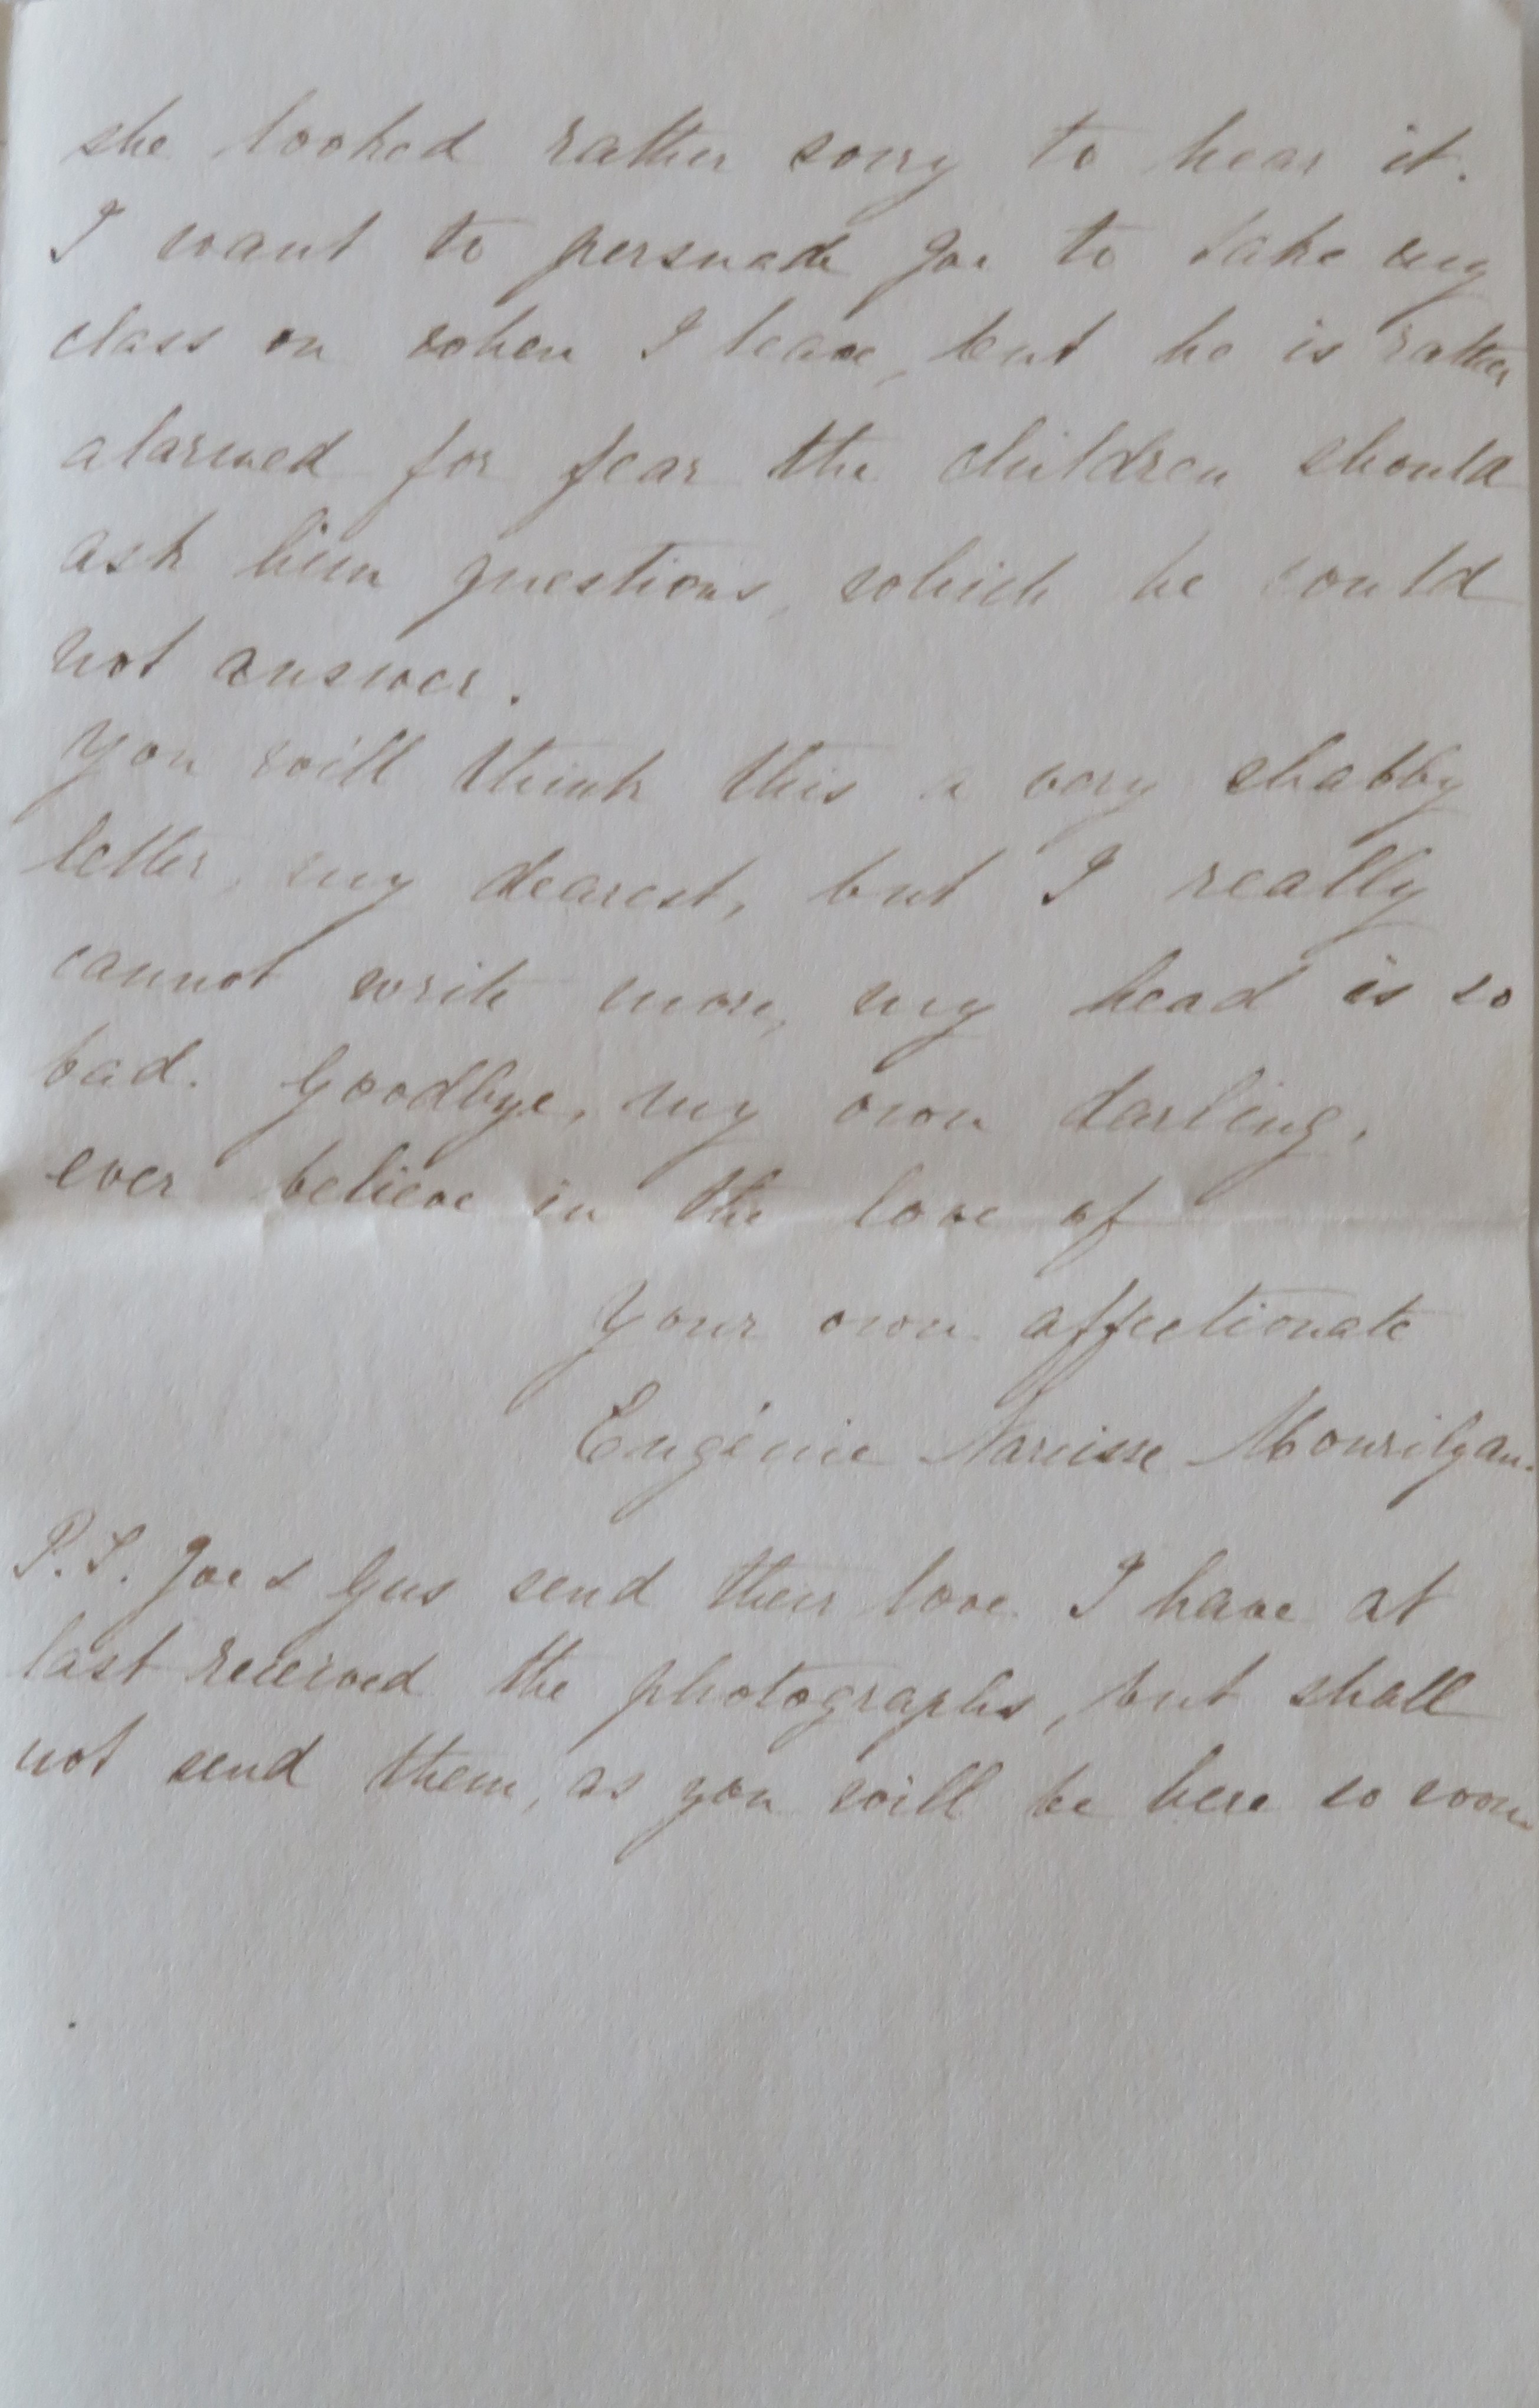 she looked rather sorry to hear it.
I want to persuade Joe to take my
class on when I leave, but he is rather
alarmed for fear the children should
ask him questions, which he could
not answer.
You will think this a very shabby
letter, my dearest, but I really
cannot write more, my head is so
bad. Goodbye, my own darling,
ever believe in the love of
Your own affectionate
Eugénie Narcisse Mourilyan.
P.S. Joe & Gus send their love I have at
last received the photographs, but shall
not send them, as you will be here so soon